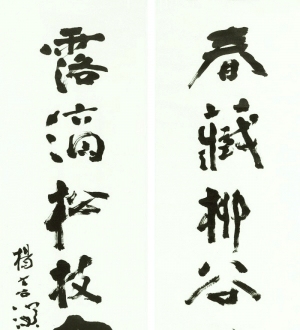 春藏柳谷
露滴松枝